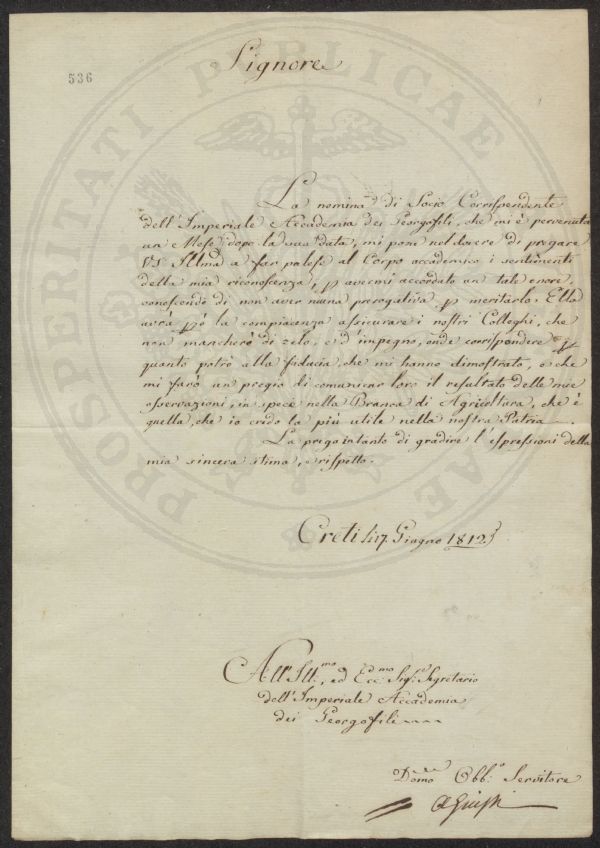 536
Signore
La nomina di Socio Corrispondente
dell'Imperiale Accademia dei Georgofili, che mi è pervenuta
un Mese dopo la sua data, mi pone nel dovere di pregare
VS Illma a far palese al Corpo accademico i sentimenti
della mia riconoscenza, p avermi accordato un tale onore,
conoscendo di non aver niuna prerogativa p meritarlo. Ella
avrà però la compiacenza assicurare i nostri Colleghi, che
non mancherò di zelo, e d'impegno, onde corrispondere p
quanto potrò alla fiducia, che mi hanno dimostrato, e che
mi farò un pregio di comunicar loro il resultato delle mie
osservazioni, in specie nella Branca di Agricoltura, che è
quella, che io credo la più utile nella nostra Patria
La prego intanto di gradire l'espressioni della
mia sincera stima, e rispetto.
Creti li 17. Giugno 1812
All' Ill.mo, ed Ecc.mo Sig.re Segretario
dell'Imperiale Accademia
dei Georgofili
Dō̃mo Obb.o Servitore
PROSPERITATI PUBLICAE AUGENDAE